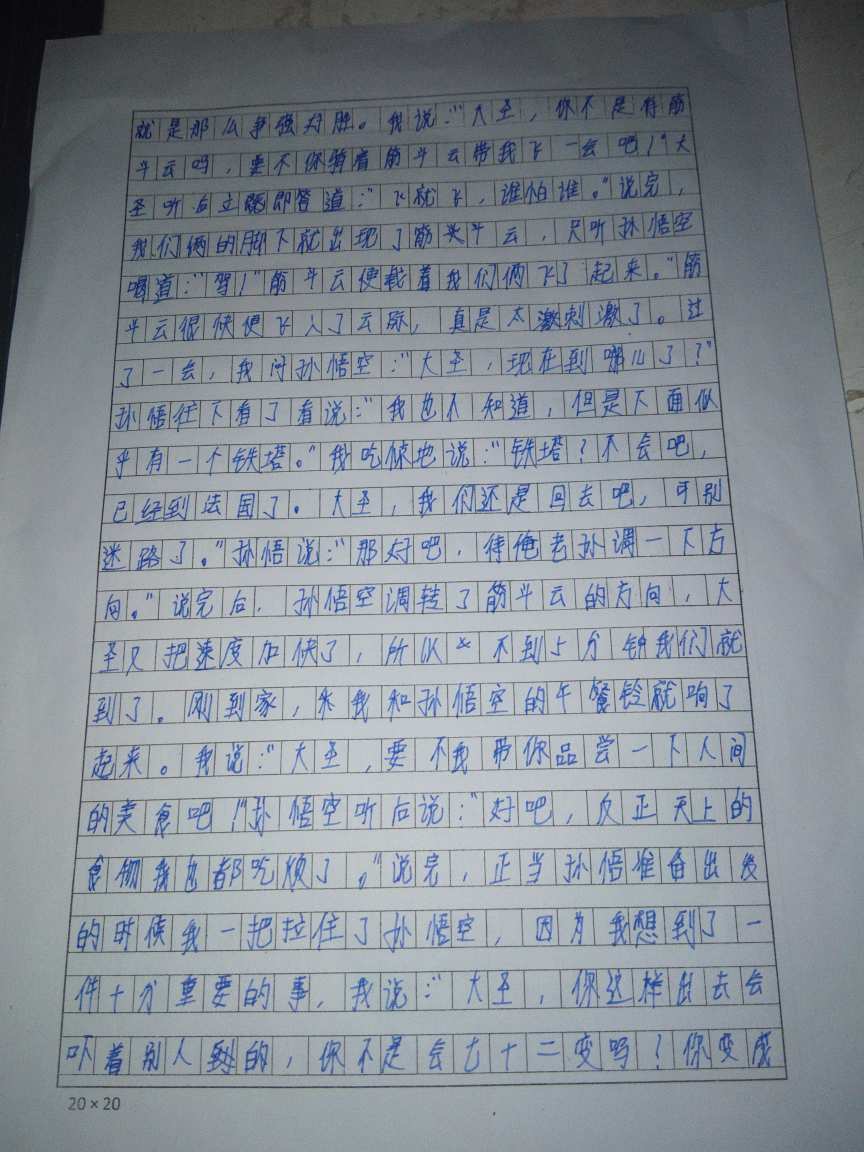 就是那么争强好胜。我说:"大圣,你不是有筋
斗云吗,要不你骑着筋斗云带我飞一会吧!"大
圣听后立即答道:"飞就飞,谁怕谁。"说完,
我们俩的脚下就出现了筋头斗云,只听孙悟空
喝道:"驾!"筋斗云便载着我们俩飞了起来。"筋
斗云很快便飞入了云际,真是太激刺激了。过
了一会,我问孙悟空:"大圣,现在到哪儿了?"
孙悟往下看了看说:"我也不知道,但是下面似
乎有一个铁塔。"我吃惊地说:"铁塔?不会吧,
已经到法国了。大圣,我们还是回去吧,可别
迷路了。"孙悟说:"那好吧,待俺老孙调一下方
向。"说完后,孙悟空调转了筋斗云的方向,大
圣又把速度加快了,所以不到5分钟我们就
到了。刚到家,我和孙悟空的午餐铃就响了
起来。我说:"大圣,要不我带你品尝一下人间
的美食吧!"孙悟空听后说:"好吧,反正天上的
食物我也都吃烦了。"说完,正当孙悟准备出发
的时候我一把拉住了孙悟空,因为我想到了一
件十分重要的事,我说:"大圣,你这样出去会
吓着别人到的,你不是会七十二变吗?你变成
20×20